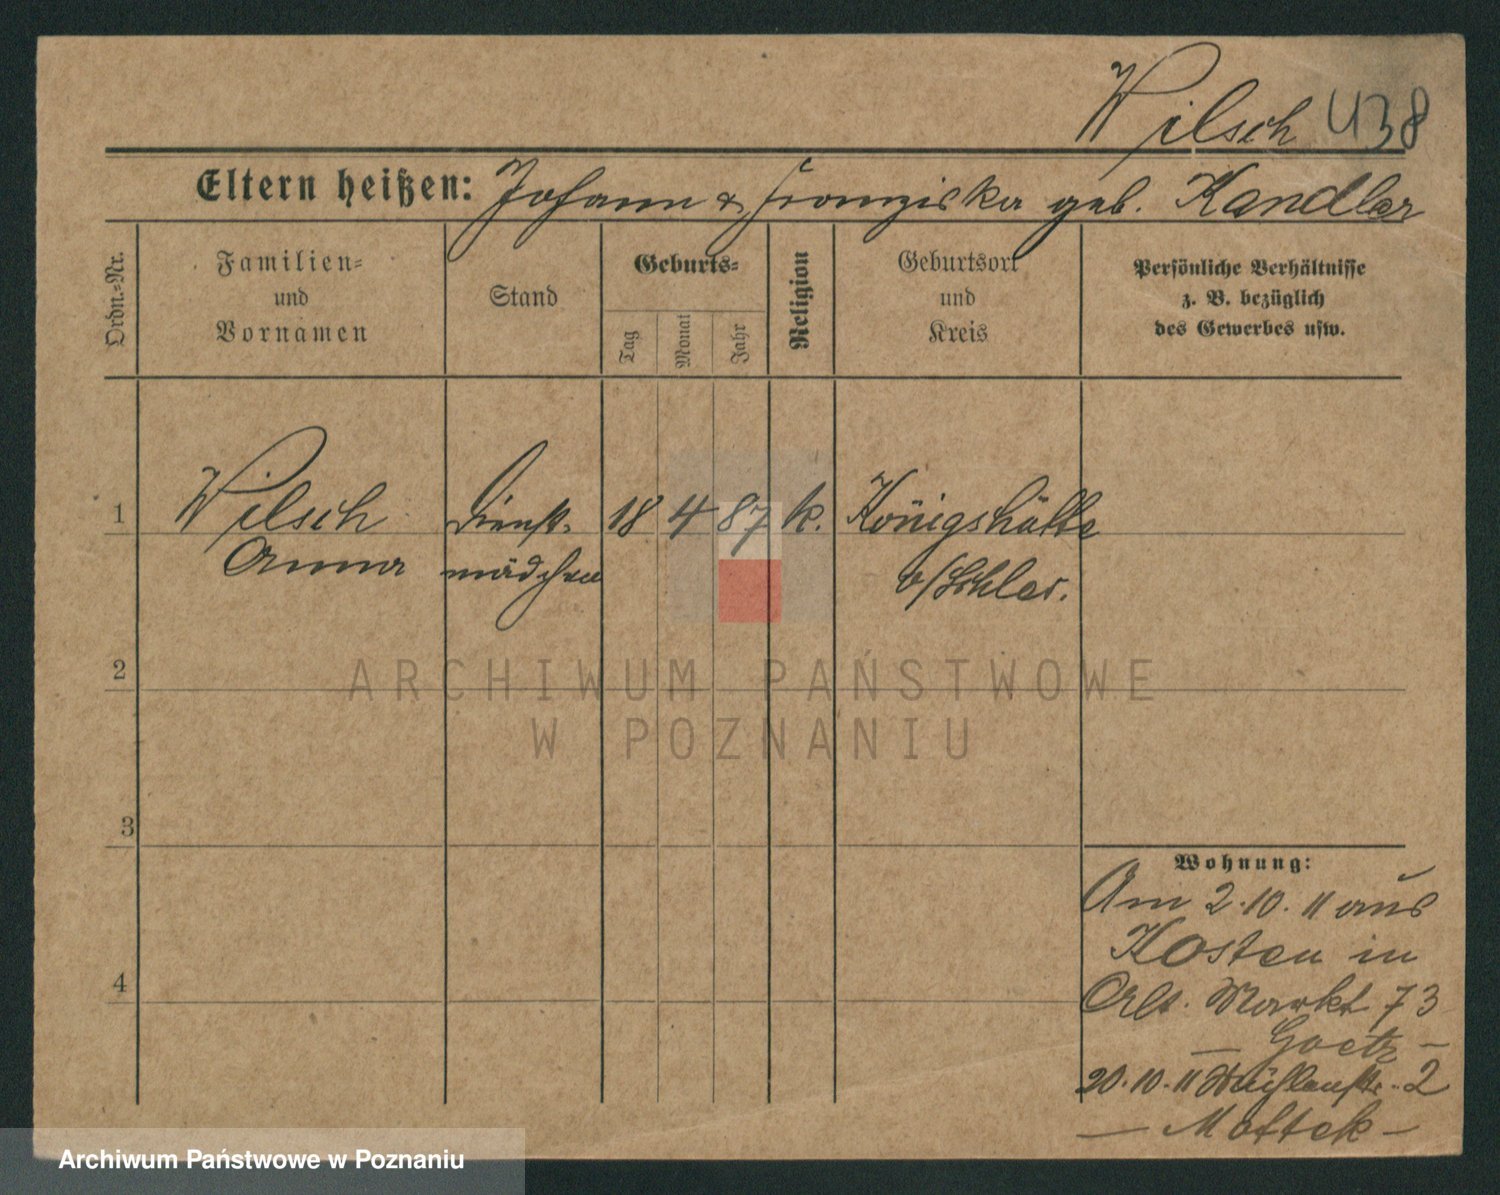 Wilsch 438
Eltern heißen: Johann & Franziska geb. Kandler
Ordn.-Nr.
Familien-
und
Vornamen
Stand
Geburts-
Tag
Monat
Jahr
Religion
Geburtsort
und
Kreis
Persönliche Verhältnisse
z. B. bezüglich
des Gewerbes usw.
1 Wilsch Dienst- 18 4 87 k. Königshütte
Anna mädchen o/Schles.
2
3
4
Wohnung:
Am 2.10.11 aus
Kosten in
Alt. Markt 73
— Goetz —
20.10.11 Mühlenstr. 2
— Mottek —
ARCHIWUM PAŃSTWOWE
W POZNANIU
Archiwum Państwowe w Poznaniu